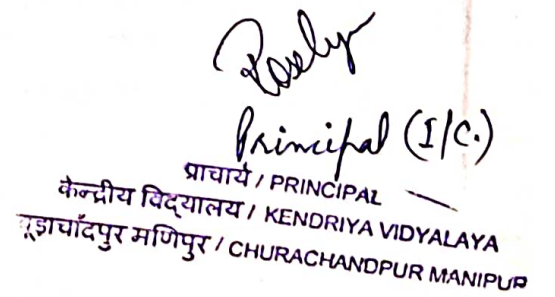 Roselyn
Principal (I/C.)
प्राचार्य / PRINCIPAL
केन्द्रीय विद्यालय / KENDRIYA VIDYALAYA
चूड़ाचाँदपुर मणिपुर / CHURACHANDPUR MANIPUR